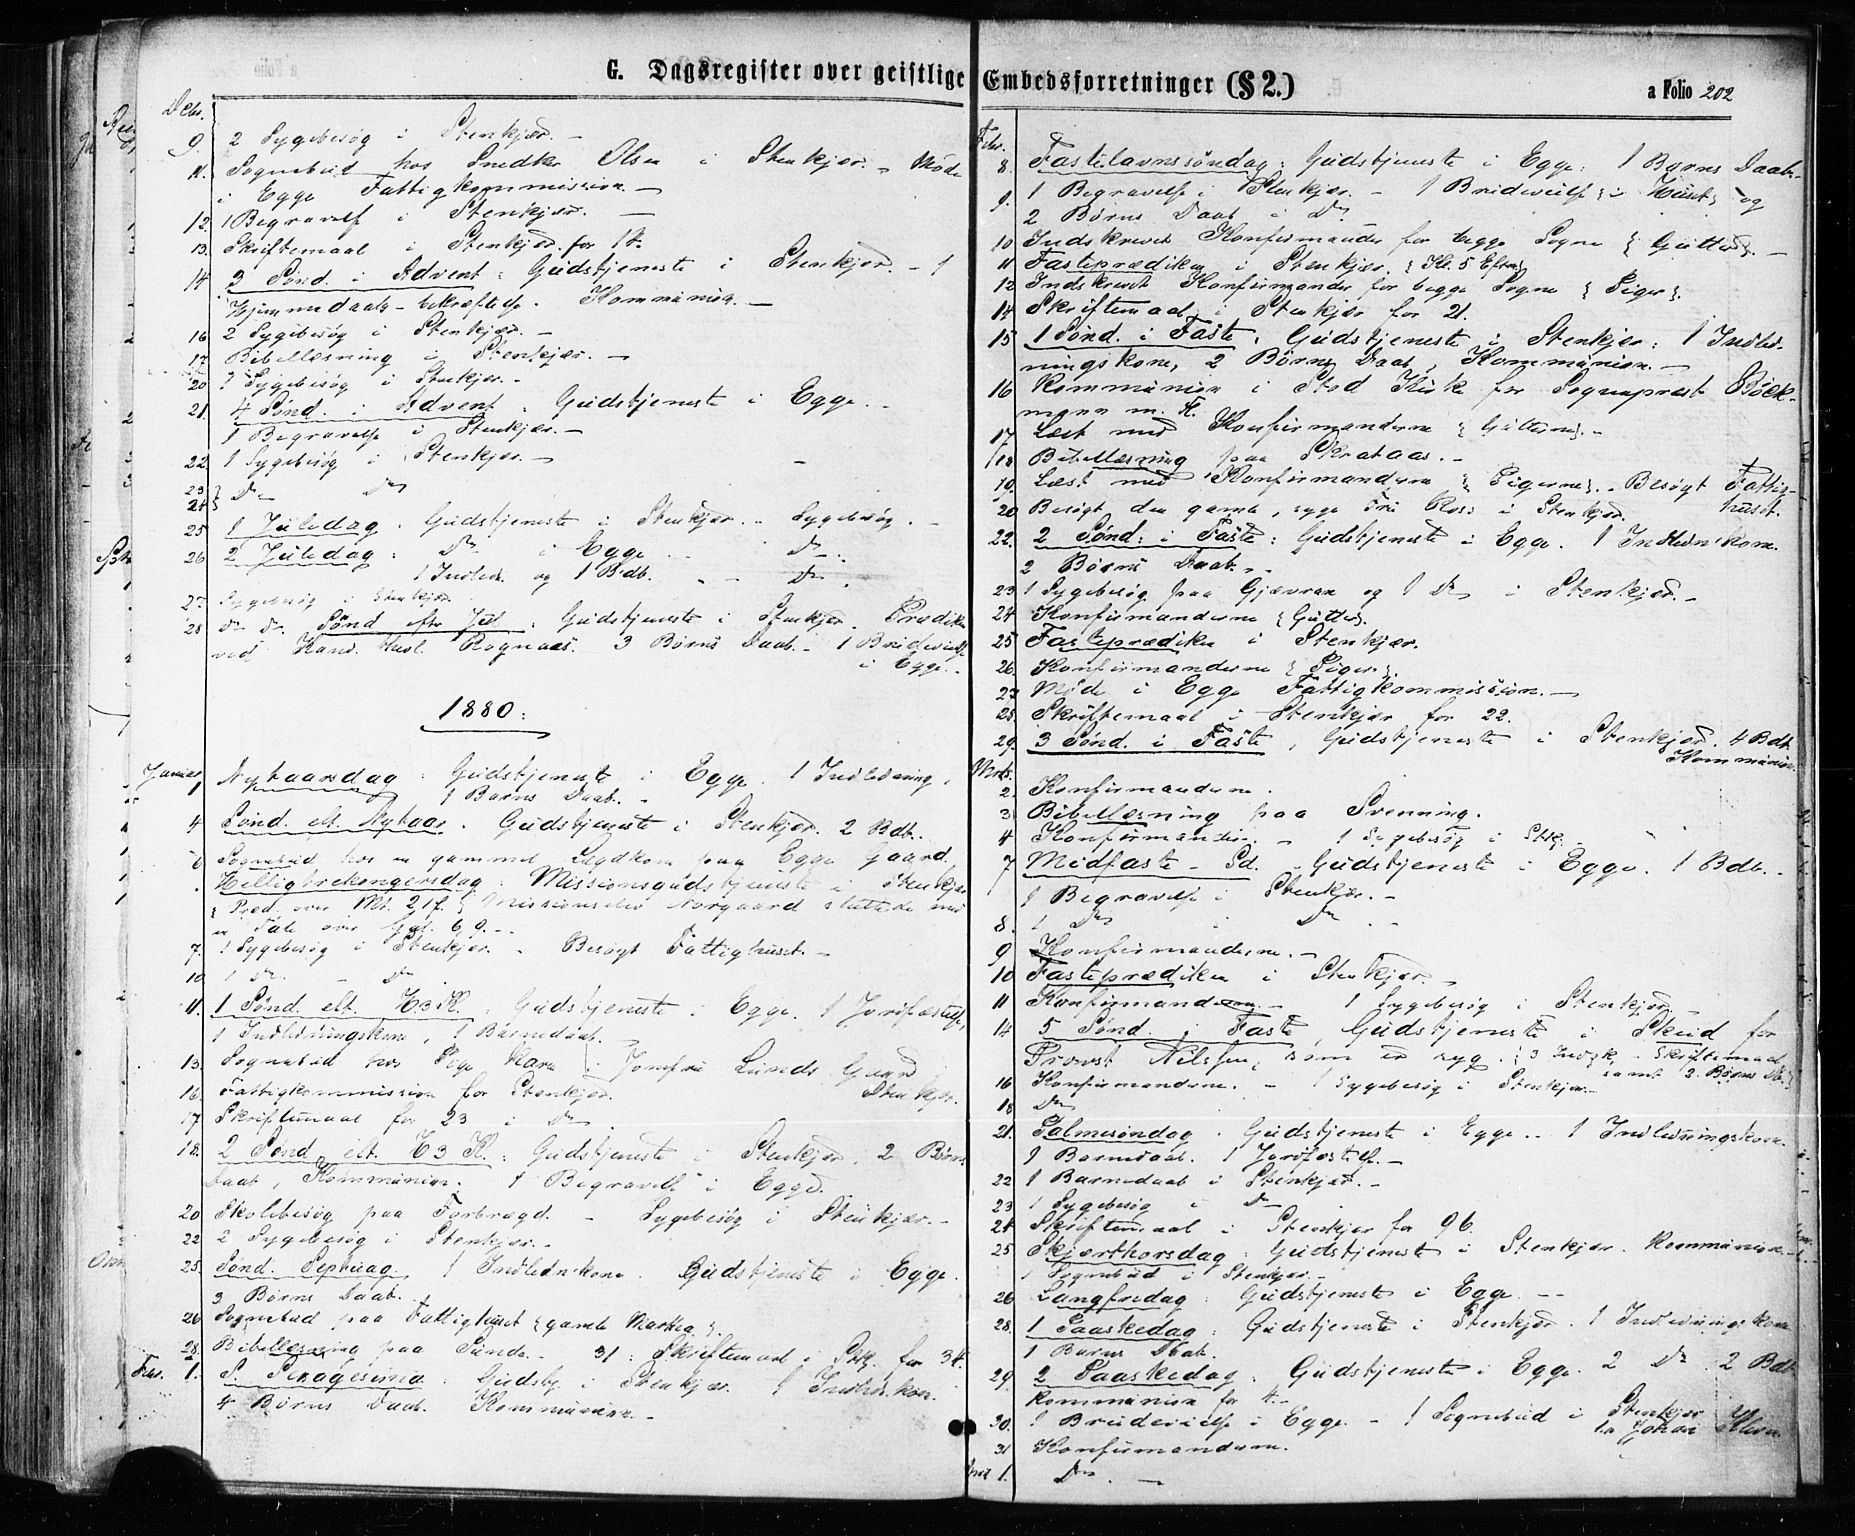 G. Dagsregister over geistlige Embedsforretninger (§ 2.)
a Folio 202
Debr.
9. 2 Sygebesøg i Stenkjær. —
11. Sognebud hos Snedker Olsen i Stenkjær. – Møde
i Egge Fattigkommission. —
12. 1 Begravelse i Stenkjær. —
13. Skriftemaal i Stenkjær for 17.
14. 3 Sønd. i Advent: Gudstjeneste i Stenkjær. – 1
Hjemmedaabs-bekræftelse. Kommunion. —
16 2 Sygebesøg i Stenkjær. —
17. Bibellæsning i Stenkjær. —
20 1 Sygebesøg i Stenkjær. –
21. 4 Sønd. i Advent: Gudstjeneste i Egge. –
1 Begravelse i Stenkjær. —
22. 1 Sygebesøg i Stenkjær. —
23 Do Do
24
25 1 Juledag. Gudstjeneste i Stenkjær. – Sygebesøg. –
26 2 Juledag: Do i Egge – Do.
1 Indledn. og 1 Bdb. – – Do.
27. Sygebesøg i Stenkjær
28 Do Do. Sønd efter Jul: Gudstjeneste i Stenkjær. Prædiken
ved Kand. Rognaas. 3 Børns Daab. – 1 Brudevielse
i Egge. –
1880:
Januar 1 Nytaarsdag: Gudstjeneste i Egge. 1 Indledning,
1 Barns Daab. –
4 Sønd. eft. Nytaar. Gudstjeneste i Stenkjær. 2 Bdb. –
6 Sognebud hos en gammel Lægdkone paa Egge Gaard.
Helligtrekongersdag: Missionsgudstjeneste i Stenkjær
{Præd. over Mt. 2,1f.} Missionselev Norgaard sluttede med
en Tale over Gal. 6,9. –
7. 1 Sygebesøg i Stenkjær. – Besøgt Fattighuset. –
10. 1 Do – Do –
11. 1 Sønd. eft. H3K.: Gudstjeneste i Egge. 1 Jordfæstelse,
1 Indledningskone, 1 Barnedaab.
13. Sognebud hos Pige Kara i Jomfru Lunds Gaard
Stenkjær.
16. Fattigkommission for Stenkjær.
17. Skriftemaal for 23 i Do.
18. 2 Sønd. eft. H3K.: Gudstjeneste i Stenkjær. 2 Børns
Daab, Kommunion. 1 Begravelse i Egge.
20 Skolebesøg paa Forbregd. – Sygebesøg i Stenkjær. –
22 2 Sygebesøg i Stenkjær. –
25. Sønd. Septuag. 1 Indledn.kone. Gudstjeneste i Egge.
3 Børns Daab. –
26 Sognebud paa Fattighuset {gamle Martha}.
28. Bibellæsning paa Sunde. – 31: Skriftemaal i Stkj. for 34.
Febr. 1. S. Sexagesima: Gudstj. i Stenkjær. 1 Indledn.kone.
4 Børns Daab. Kommunion. –
Febr.
8. Fastelavnssøndag: Gudstjeneste i Egge: 1 Barns Daab. –
9. 1 Begravelse i Stenkjær. – 1 Brudevielse {i Huset} og
2 Børns Daab i Do
10 Indskrevet Konfirmander for begge Sogne {Gutter}. –
11 Fasteprædiken i Stenkjær. {Kl. 5 Efterm.}
12 Indskrevet Konfirmander for begge Sogne {Piger}.
14 Skriftemaal i Stenkjær for 21.
15 1 Sønd. i Faste: Gudstjeneste i Stenkjær: 1 Indled-
ningskone, 2 Børns Daab, Kommunion. –
16 Kommunion i Stod Kirke for Sogneprest Böck-
mann m. Fl.
17. Læst med Konfirmanderne {Gutterne}. –
18. Bibellæsning paa Skrataas. –
19. Læst med Konfirmanderne {Pigerne}. – Besøgt Fattig-
huset.
20 Besøgt den gamle, syge Fru Ross i Stenkjær.
22. 2 Sønd: i Faste: Gudstjeneste i Egge. 1 Indledn.kone.
2 Børns Daab. –
23 1 Sygebesøg paa Gjævran og 1 Do i Stenkjær. –
24. Konfirmanderne {Gutter}.
25 Fasteprædiken i Stenkjær.
26. Konfirmanderne {Piger}.
27. Møde i Egge Fattigkommission. –
28. Skriftemaal i Stenkjær for 22.
29. 3 Sønd. i Faste, Gudstjeneste i Stenkjær. 4 Bdb.
Kommunion.
Mrts.
2. Konfirmanderne.
3 Bibellæsning paa Svenning.
4 Konfirmander. – 1 Sygebesøg i Stkj.
7 Midfaste-Sd. Gudstjeneste i Egge. 1 Bdb. –
1 Begravelse i Stenkjær. –
8. 1 Do i Do –
9 Konfirmanderne. –
10 Fasteprædiken i Stenkjær –
11 Konfirmanderne – 1 Sygebesøg i Stenkjær –
14 5 Sønd. i Faste, Gudstjeneste i Skeid for
Provst Nilssen, som er syg. {3 Indl.k., Skriftemaal
samt 2 Børns Db.}
16 Konfirmanderne. – 1 Sygebesøg i Stenkjær. –
18 Do
21. Palmesøndag. Gudstjeneste i Egge. – 1 Indledningskone
1 Barnedaab. 1 Jordfæstelse. –
22 1 Barnedaab i Stenkjær. –
23 1 Sygebesøg i Do
24 Skriftemaal i Stenkjær for 96.
25 Skjærthorsdag: Gudstjeneste i Stenkjær. Kommunion. –
1 Sognebud i Stenkjær. –
26 Langfredag: Gudstjeneste i Egge. –
28. 1 Paaskedag: Gudstjeneste i Stenkjær. 1 Indlednings kone
1 Barns Daab.
29. 2 Paaskedag: Gudstjeneste i Egge. 2 Do. 2 Bdb.
Kommunion for 4. –
30. 1 Brudevielse i Egge. – 1 Sognebud i Stenkjær
Johan
31 Konfirmanderne.
April 1. Do –